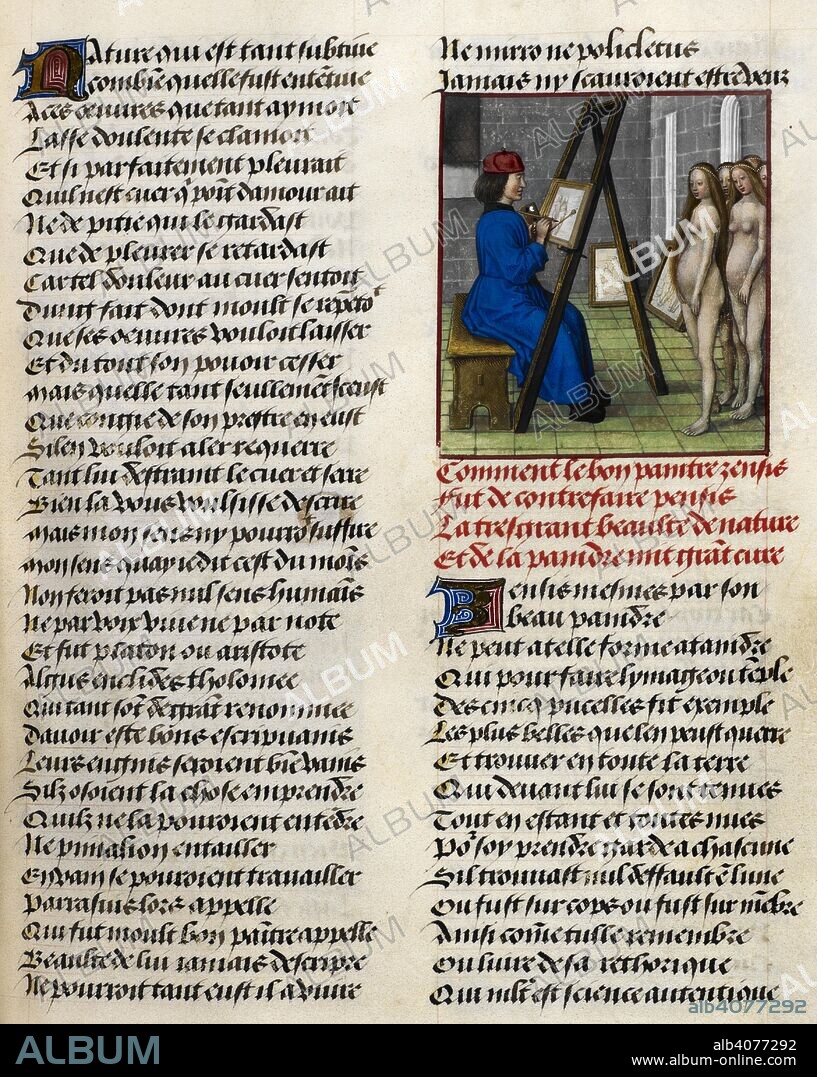 Nature qui est tant subtive
combiē quelle fust entētive
A ces oeuvres que tant aymoit
Lasse doulente se clamoit
Et si parfaitement pleurait
Quil nest cuer q̄ poīt damour ait
Ne de pitie qui le gardast
Que de pleurer se retardast
Car tel douleur au cuer sentoit
Dung fait dont moult se repētoit
Que ses oeuvres vouloit laisser
Et du tout son pouoir cesser
Mais quelle tant seullemēt sceust
Que congie de son prestre en eust
Si len vouloit aler requerre
Tant lui destraint le cuer et serre
Bien la vous voulsisse descrire
Mais mon sens ny pourroit suffire
Mon sens quay ie dit cest du moīs
Non feroit pas nul sens humains
Ne par voix vive ne par note
Et fut platon ou aristote
Algus euclides tholomee
Qui tant sōt de grāt renommee
Davoir este bons escripvains
Leurs engins seroient biē vains
Silz osoient la chose emprendre
Quilz ne la pouroient entēdre
Ne pimalion entailler
En vain se pouroient travailler
Parrasius lors appelle
Qui fut moult bon paītre appelle
Beaulte de lui iamais descripre
Ne pourroit tant eust il a vivre
Ne mirro ne policletus
Jamais ny scauroient estre venz
Comment le bon paintre zensis
Fut de contrefaire pensis
La tresgrant beaulte de nature
Et de la paindre mit grāt cure
Zensis mesmes par son
beau paindre
Ne peut a telle forme ataindre
Qui pour faire lymage ou tēple
Des cincq pucelles fit exemple
Les plus belles que len peust querre
Et trouver en toute la terre
Qui devant lui se sont tenues
Tout en estant et toutes nues
Po' soy prendre garde a chascune
Sil trouvast nul deffault ē lune
Ou fust sur cops ou fust sur mēbre
Ainsi cōme tulle remembre
Ou livre de sa rethorique
Qui mlt est science autentique
alb4077292
ALBUM
alb4077292
www.album-online.com